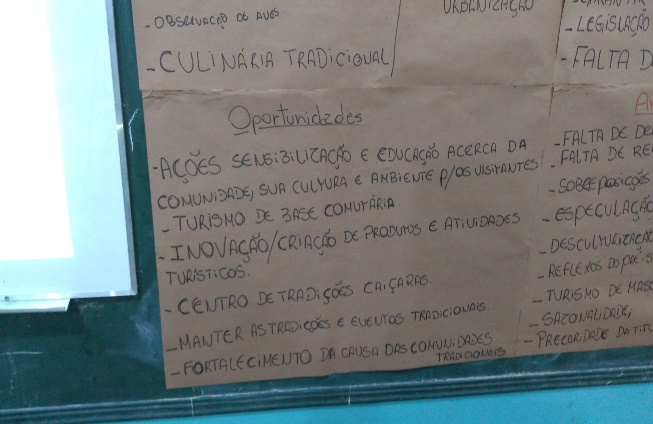 - OBSERVAÇÃO DE AVES
- CULINÁRIA TRADICIONAL
URBANIZAÇÃO
- LEGISLAÇÃO
- FALTA
Oportunidades
- AÇÕES SENSIBILIZAÇÃO E EDUCAÇÃO ACERCA DA
COMUNIDADE, SUA CULTURA E AMBIENTE P/OS VISITANTES
- TURISMO DE BASE COMUTÁRIA
- INOVAÇÃO/CRIAÇÃO DE PRODUTOS E ATIVIDADES
TURÍSTICOS.
- CENTRO DE TRADIÇÕES CAIÇARAS.
- MANTER AS TRADIÇÕES E EVENTOS TRADICIONAIS.
- FORTALECIMENTO DA CAUSA DAS COMUNIDADES
TRADICIONAIS
- FALTA DE
- FALTA DE
- SOBREPOSIÇÕES
- ESPECULAÇÃO
- DESCULTURIZAÇÃO
- REFLEXOS DO PRÉ-S
- TURISMO DE MASS
- SAZONALIDADE;
- PRECARIDADE DA TITU